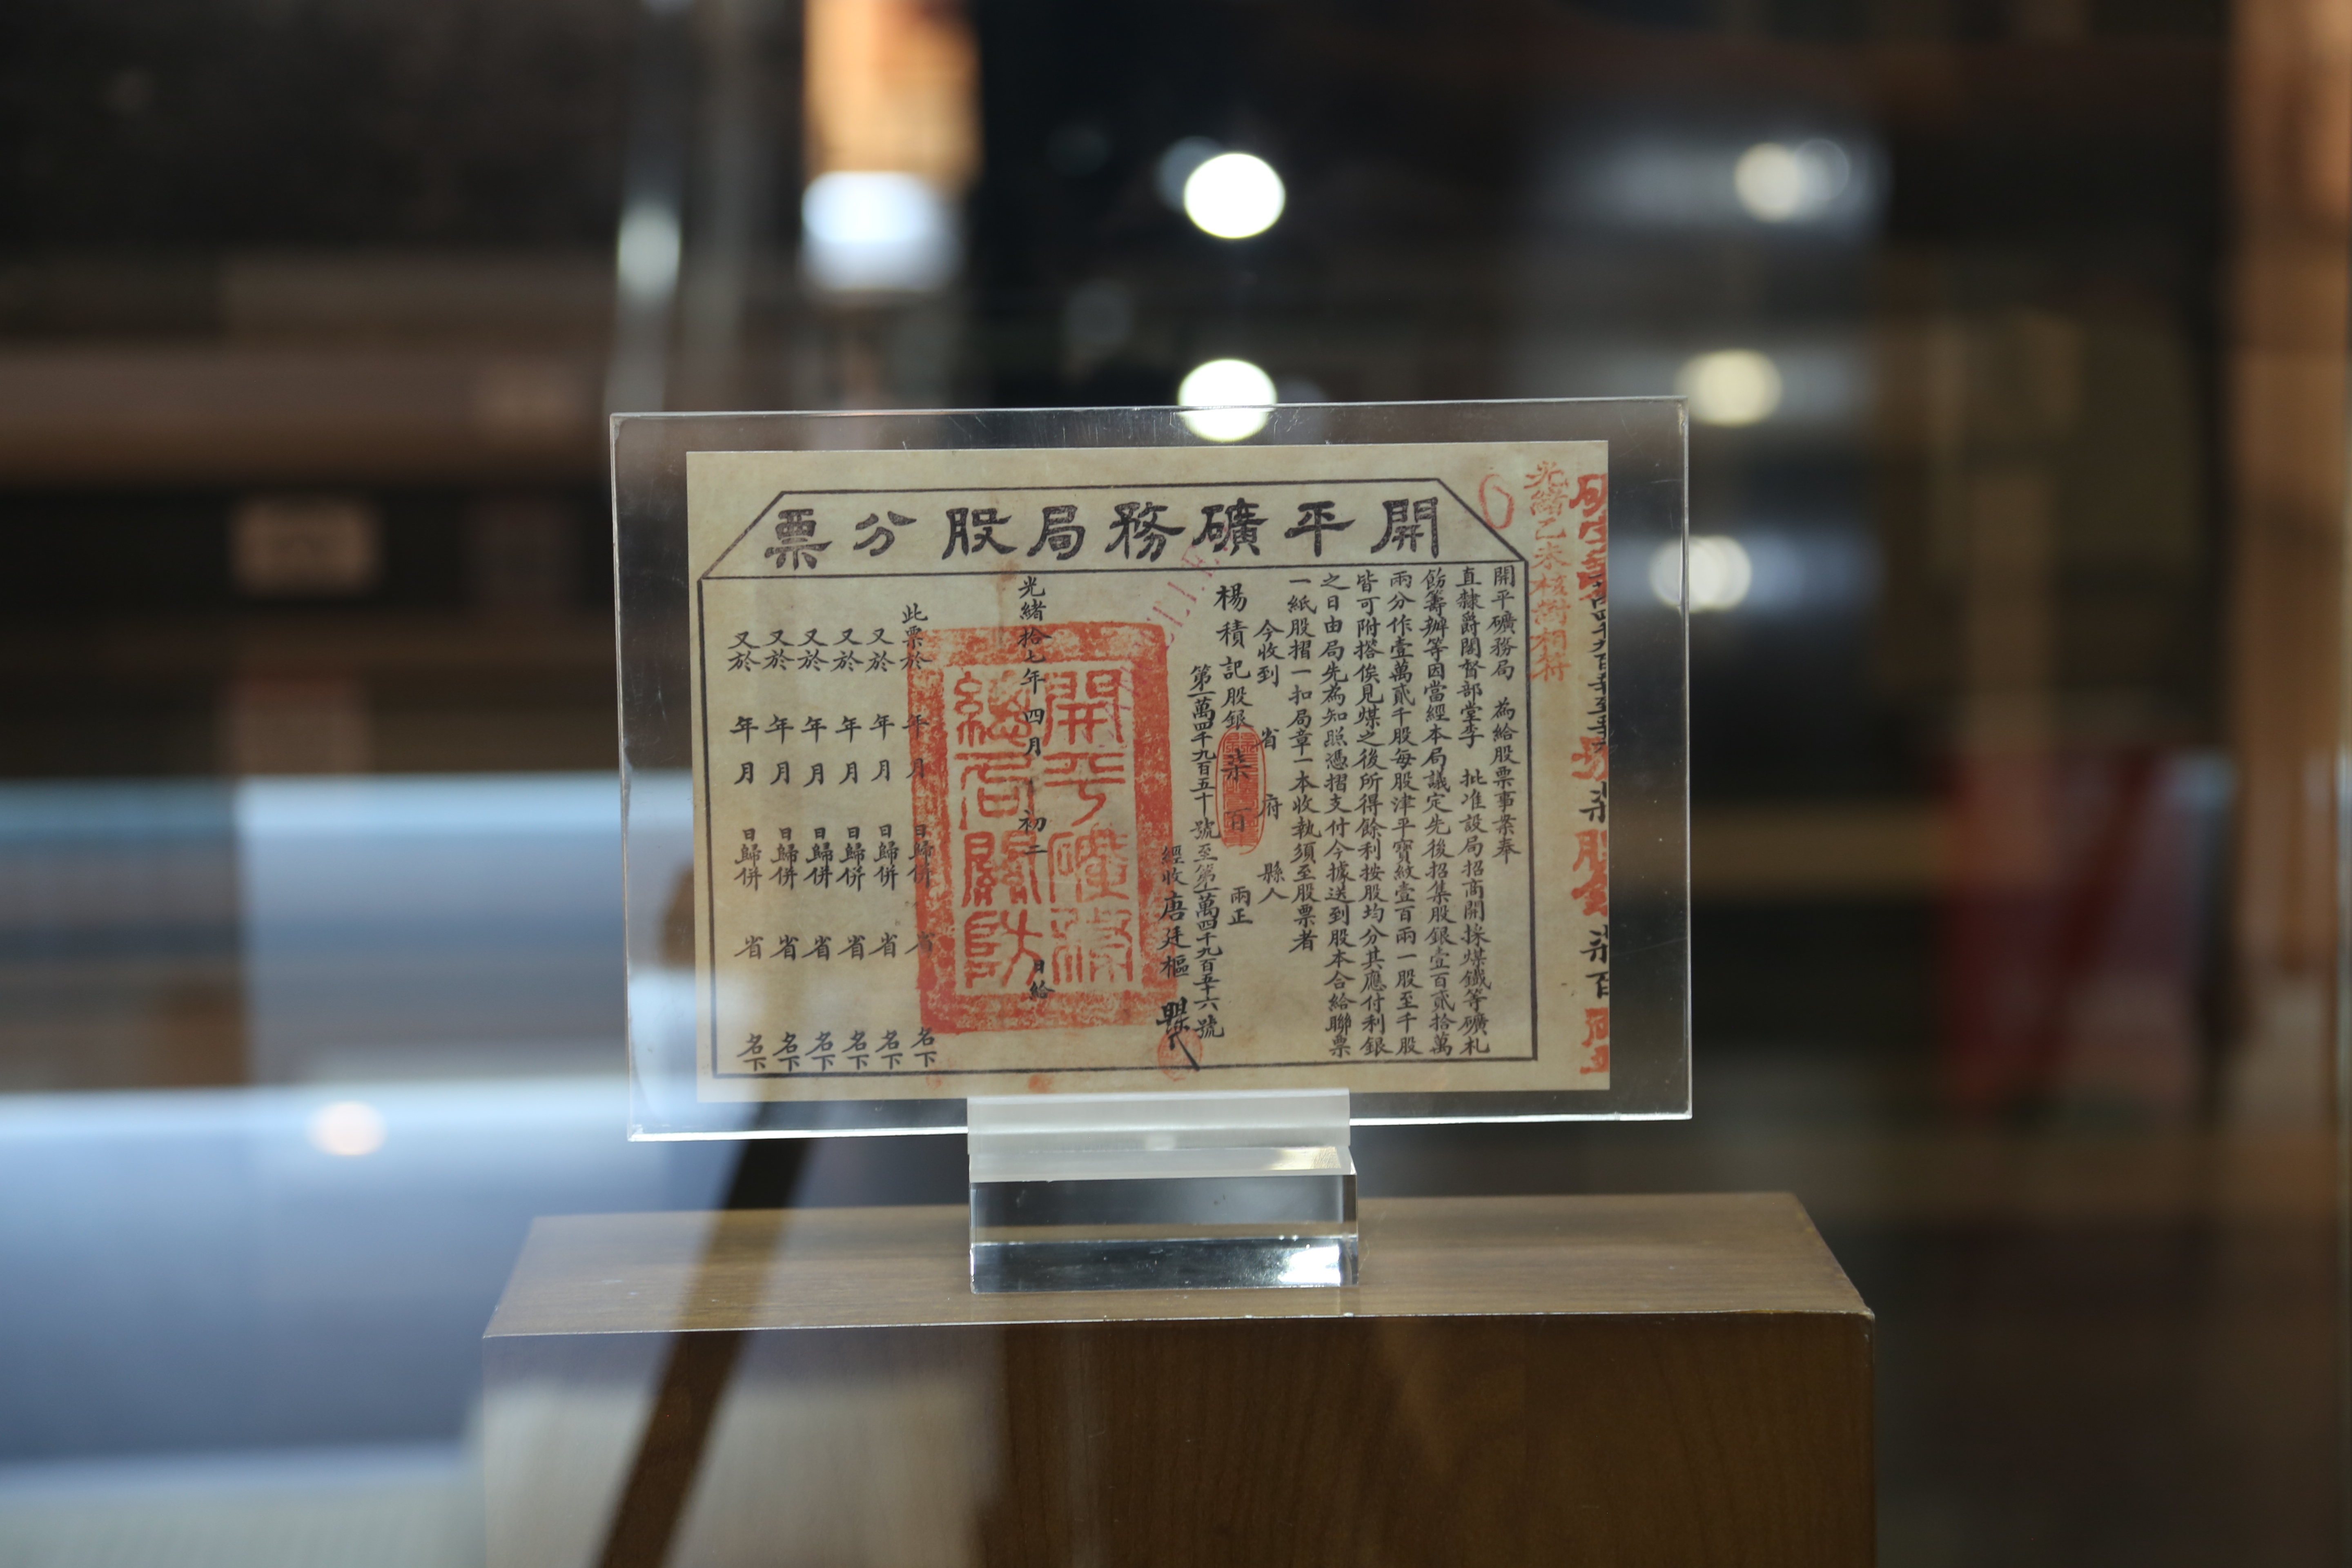 開平礦務局股分票
光緒乙未核對相符
開平礦務局 為給股票事案奉
直隸爵閣督部堂李 批准設局招商開採煤鐵等礦札
飭籌辦等因當經本局議定先後招集股銀壹百貳拾萬
兩分作壹萬貳千股每股津平寶紋壹百兩一股至千股
皆可附搭俟見煤之後所得餘利按股均分其應付利銀
之日由局先為知照憑摺支付今據送到股本合給聯票
一紙股摺一扣局章一本收執須至股票者
今收到 省 府 縣人
楊積記股銀 柒百 兩正
第一萬四千九百五十號至第一萬四千九百五十六號
經收唐廷樞
光緒拾七年四月初二日給
開平礦務
總局關防
此票於 年 月 日歸併 省 名下
又於 年 月 日歸併 省 名下
又於 年 月 日歸併 省 名下
又於 年 月 日歸併 省 名下
又於 年 月 日歸併 省 名下
又於 年 月 日歸併 省 名下